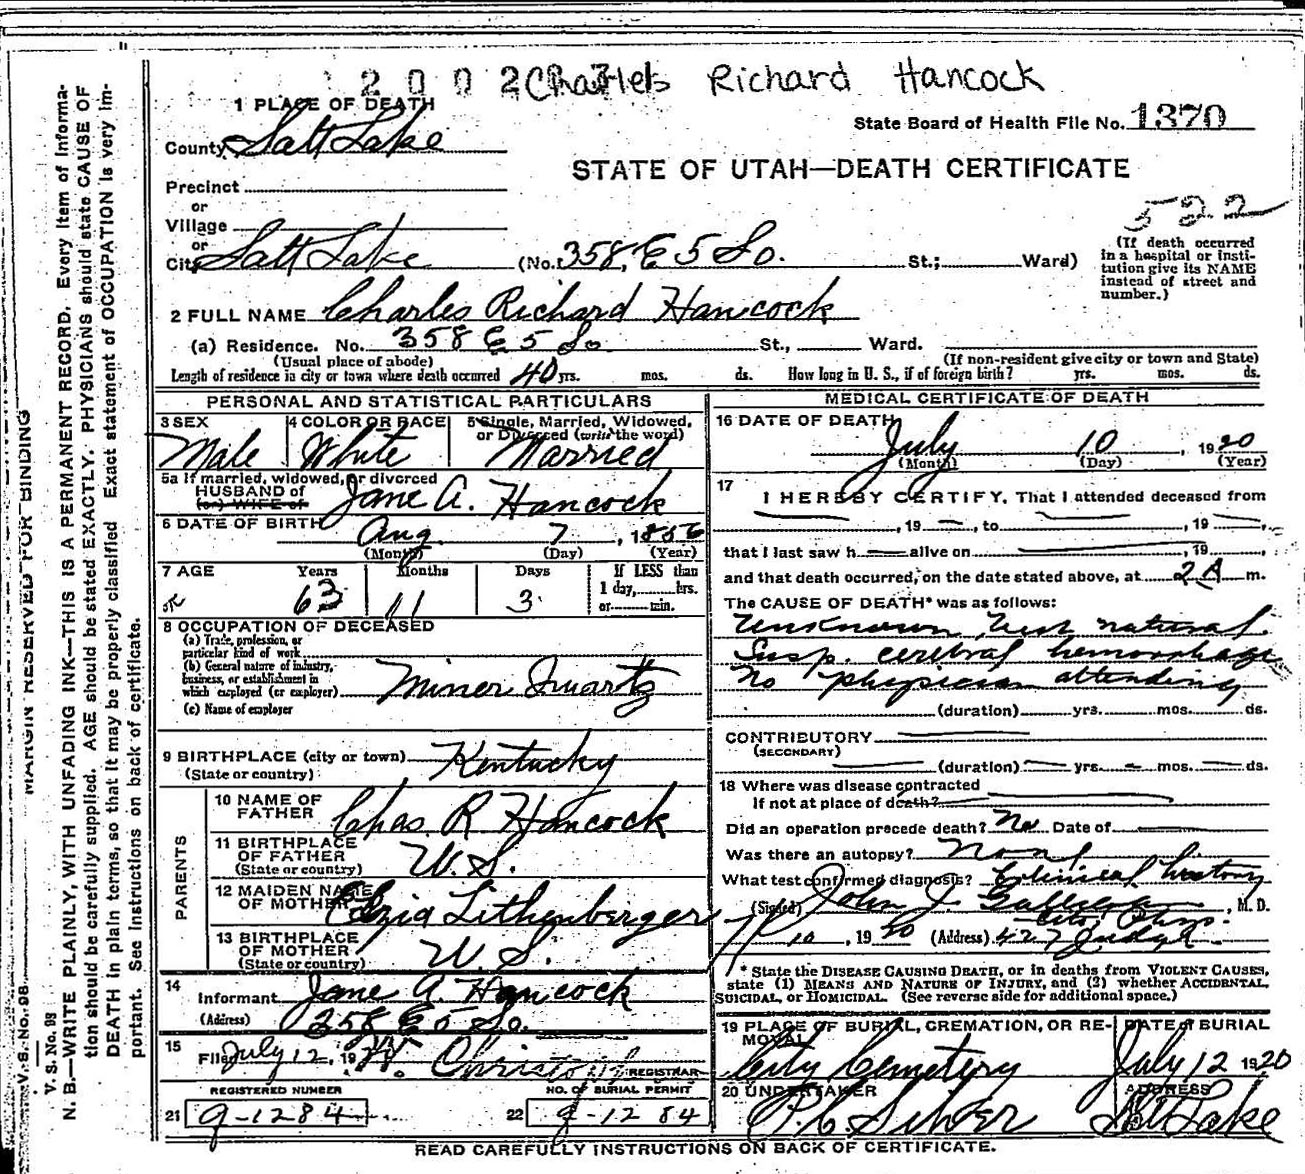 2002 Charles Richard Hancock
1 PLACE OF DEATH
State Board of Health File No. 1370
County Salt Lake
STATE OF UTAH—DEATH CERTIFICATE
Precinct
or
522
Village
or
City Salt Lake (No. 358, E 5 So. St.; Ward)
(If death occurred in a hospital or institution give its NAME instead of street and number.)
2 FULL NAME Charles Richard Hancock
(a) Residence. No. 358 E 5 So St., Ward.
(Usual place of abode) (If non-resident give city or town and State)
Length of residence in city or town where death occurred 40 yrs. mos. ds. How long in U. S., if of foreign birth? yrs. mos. ds.
PERSONAL AND STATISTICAL PARTICULARS
3 SEX 4 COLOR OR RACE 5 Single, Married, Widowed, or Divorced (write the word)
Male White Married
5a If married, widowed, or divorced
HUSBAND of
(or) WIFE of Jane A. Hancock
6 DATE OF BIRTH Aug. 7, 1856
(Month) (Day) (Year)
7 AGE Years Months Days If LESS than
1 day, hrs.
63 11 3 or min.
8 OCCUPATION OF DECEASED
(a) Trade, profession, or
particular kind of work
(b) General nature of industry,
business, or establishment in
which employed (or employer) Miner Quartz
(c) Name of employer
9 BIRTHPLACE (city or town) Kentucky
(State or country)
PARENTS
10 NAME OF
FATHER Chas. R Hancock
11 BIRTHPLACE
OF FATHER
(State or country) U. S.
12 MAIDEN NAME
OF MOTHER Lithenberger
13 BIRTHPLACE
OF MOTHER
(State or country) U. S.
14 Informant Jane A. Hancock
(Address) 358 E 5 So.
15 Filed July 12, 19 REGISTRAR
REGISTERED NUMBER NO. OF BURIAL PERMIT
21 9-1284 22 9-1284
MEDICAL CERTIFICATE OF DEATH
16 DATE OF DEATH
July 10, 1920
(Month) (Day) (Year)
17 I HEREBY CERTIFY, That I attended deceased from
, 19 , to , 19 ,
that I last saw h alive on , 19 ,
and that death occurred, on the date stated above, at 2 A m.
The CAUSE OF DEATH* was as follows:
Unknown, but natural.
Susp. cerebral hemorrhage
No physician attending
(duration) yrs. mos. ds.
CONTRIBUTORY
(SECONDARY)
(duration) yrs. mos. ds.
18 Where was disease contracted
if not at place of death?
Did an operation precede death? No Date of
Was there an autopsy? None
What test confirmed diagnosis? Clinical history
(Signed) John J. , M. D.
City Phys.
7/10, 1920 (Address) 427 Judge
* State the DISEASE CAUSING DEATH, or in deaths from VIOLENT CAUSES,
state (1) MEANS AND NATURE OF INJURY, and (2) whether ACCIDENTAL,
SUICIDAL, or HOMICIDAL. (See reverse side for additional space.)
19 PLACE OF BURIAL, CREMATION, OR REMOVAL DATE OF BURIAL
City Cemetery July 12 1920
20 UNDERTAKER ADDRESS
Salt Lake
READ CAREFULLY INSTRUCTIONS ON BACK OF CERTIFICATE.
MARGIN RESERVED FOR BINDING
V. S. No. 98
V. S. No. 98
N. B.—WRITE PLAINLY, WITH UNFADING INK—THIS IS A PERMANENT RECORD. Every item of informa-
tion should be carefully supplied. AGE should be stated EXACTLY. PHYSICIANS should state CAUSE OF
DEATH in plain terms, so that it may be properly classified. Exact statement of OCCUPATION is very im-
portant. See instructions on back of certificate.